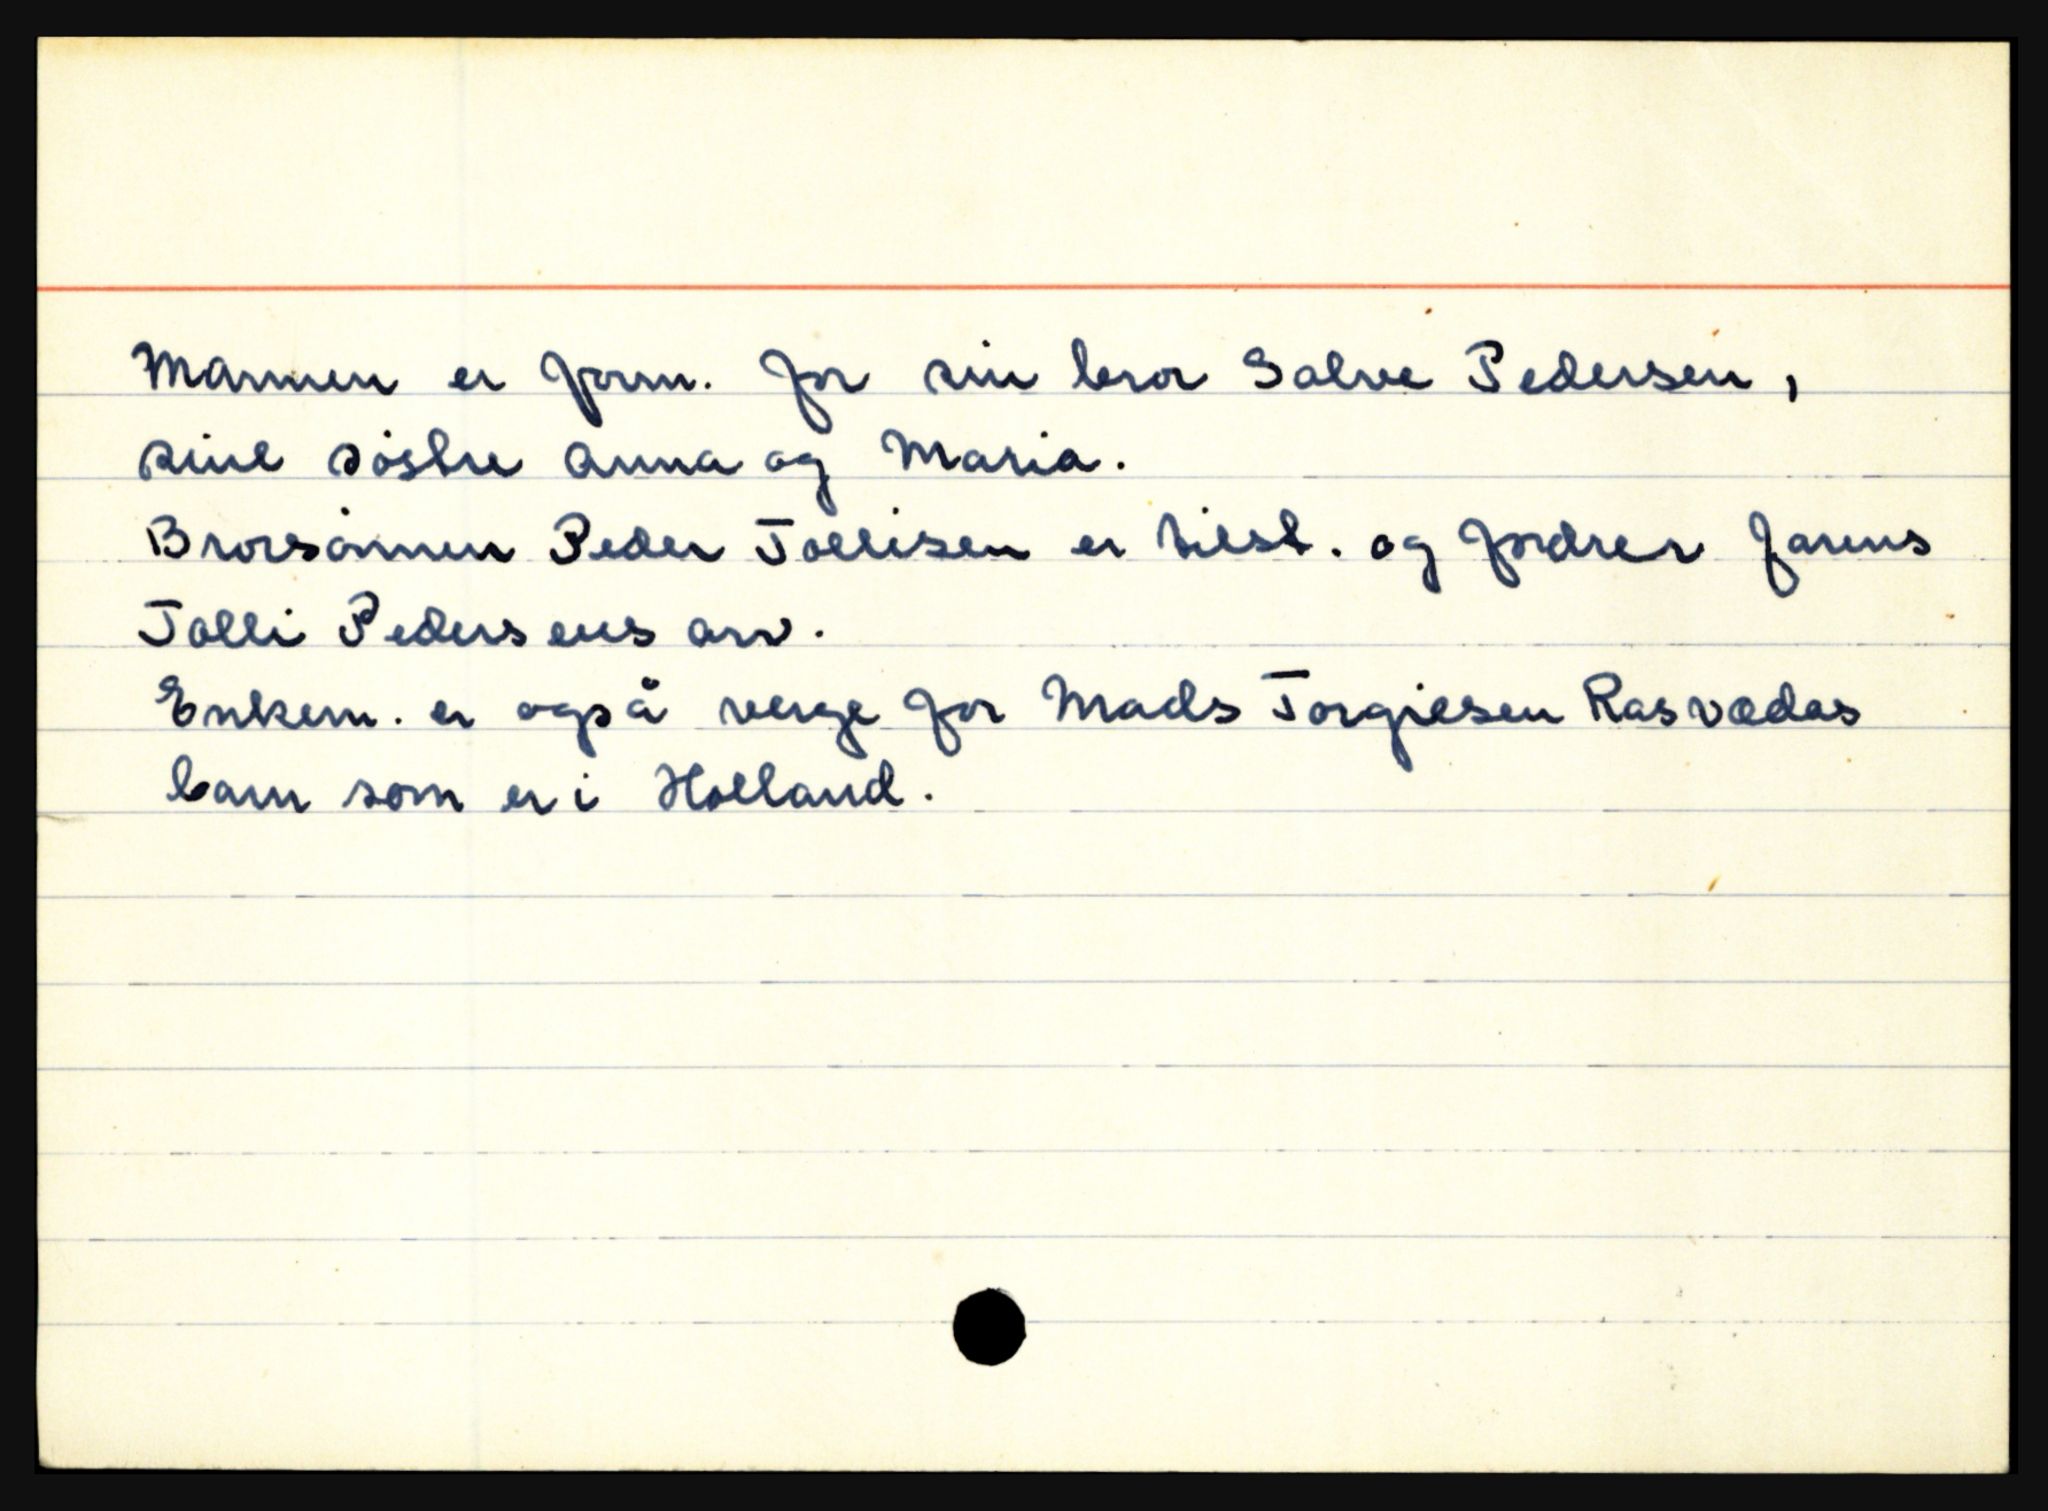 Mannen er form. for sin bror Salve Pedersen,
sine søstre Anna og Maria.
Brorsønnen Peder Tollisen er tilst. og fordrer farens
Tolli Pedersens arv.
Enkem. er også verge for Mads Torgiesen Rasvædas
barn som er i Holland.